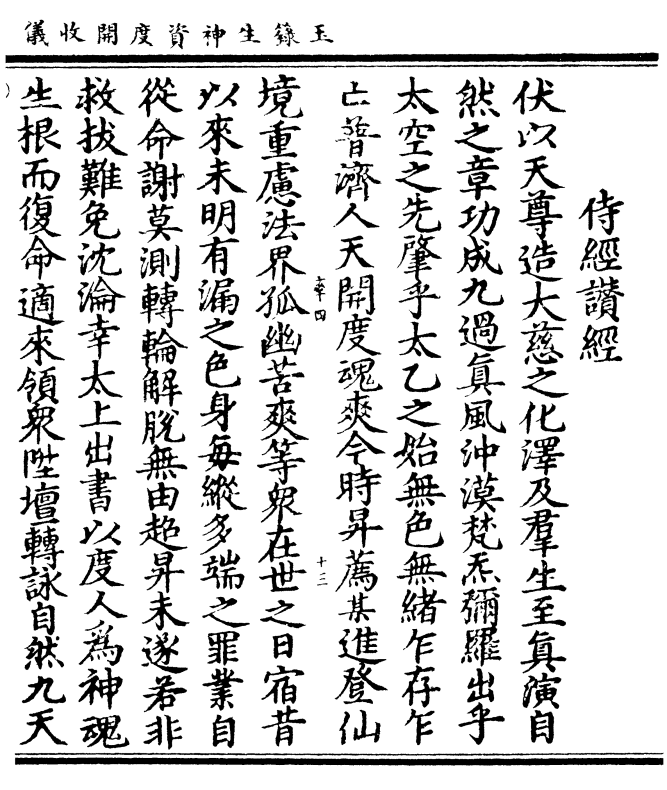 玉籙生神資度開收儀
侍經讃經
伏以天尊造大慈之化澤及羣生至眞演自
然之章功成九過眞風沖漠梵炁彌羅出乎
太空之先肇乎太乙之始無色無緒乍存乍
亡普濟人天開度魂爽今時昇薦某進登仙
六李四
十三
境重慮法界孤幽苦爽等衆在世之日宿昔
以來未明有漏之色身每縱多端之罪業自
從命謝莫測轉輪解脫無由超昇未遂若非
救拔難免沈淪幸太上出書以度人爲神魂
生根而復命適來領衆陞壇轉詠自然九天